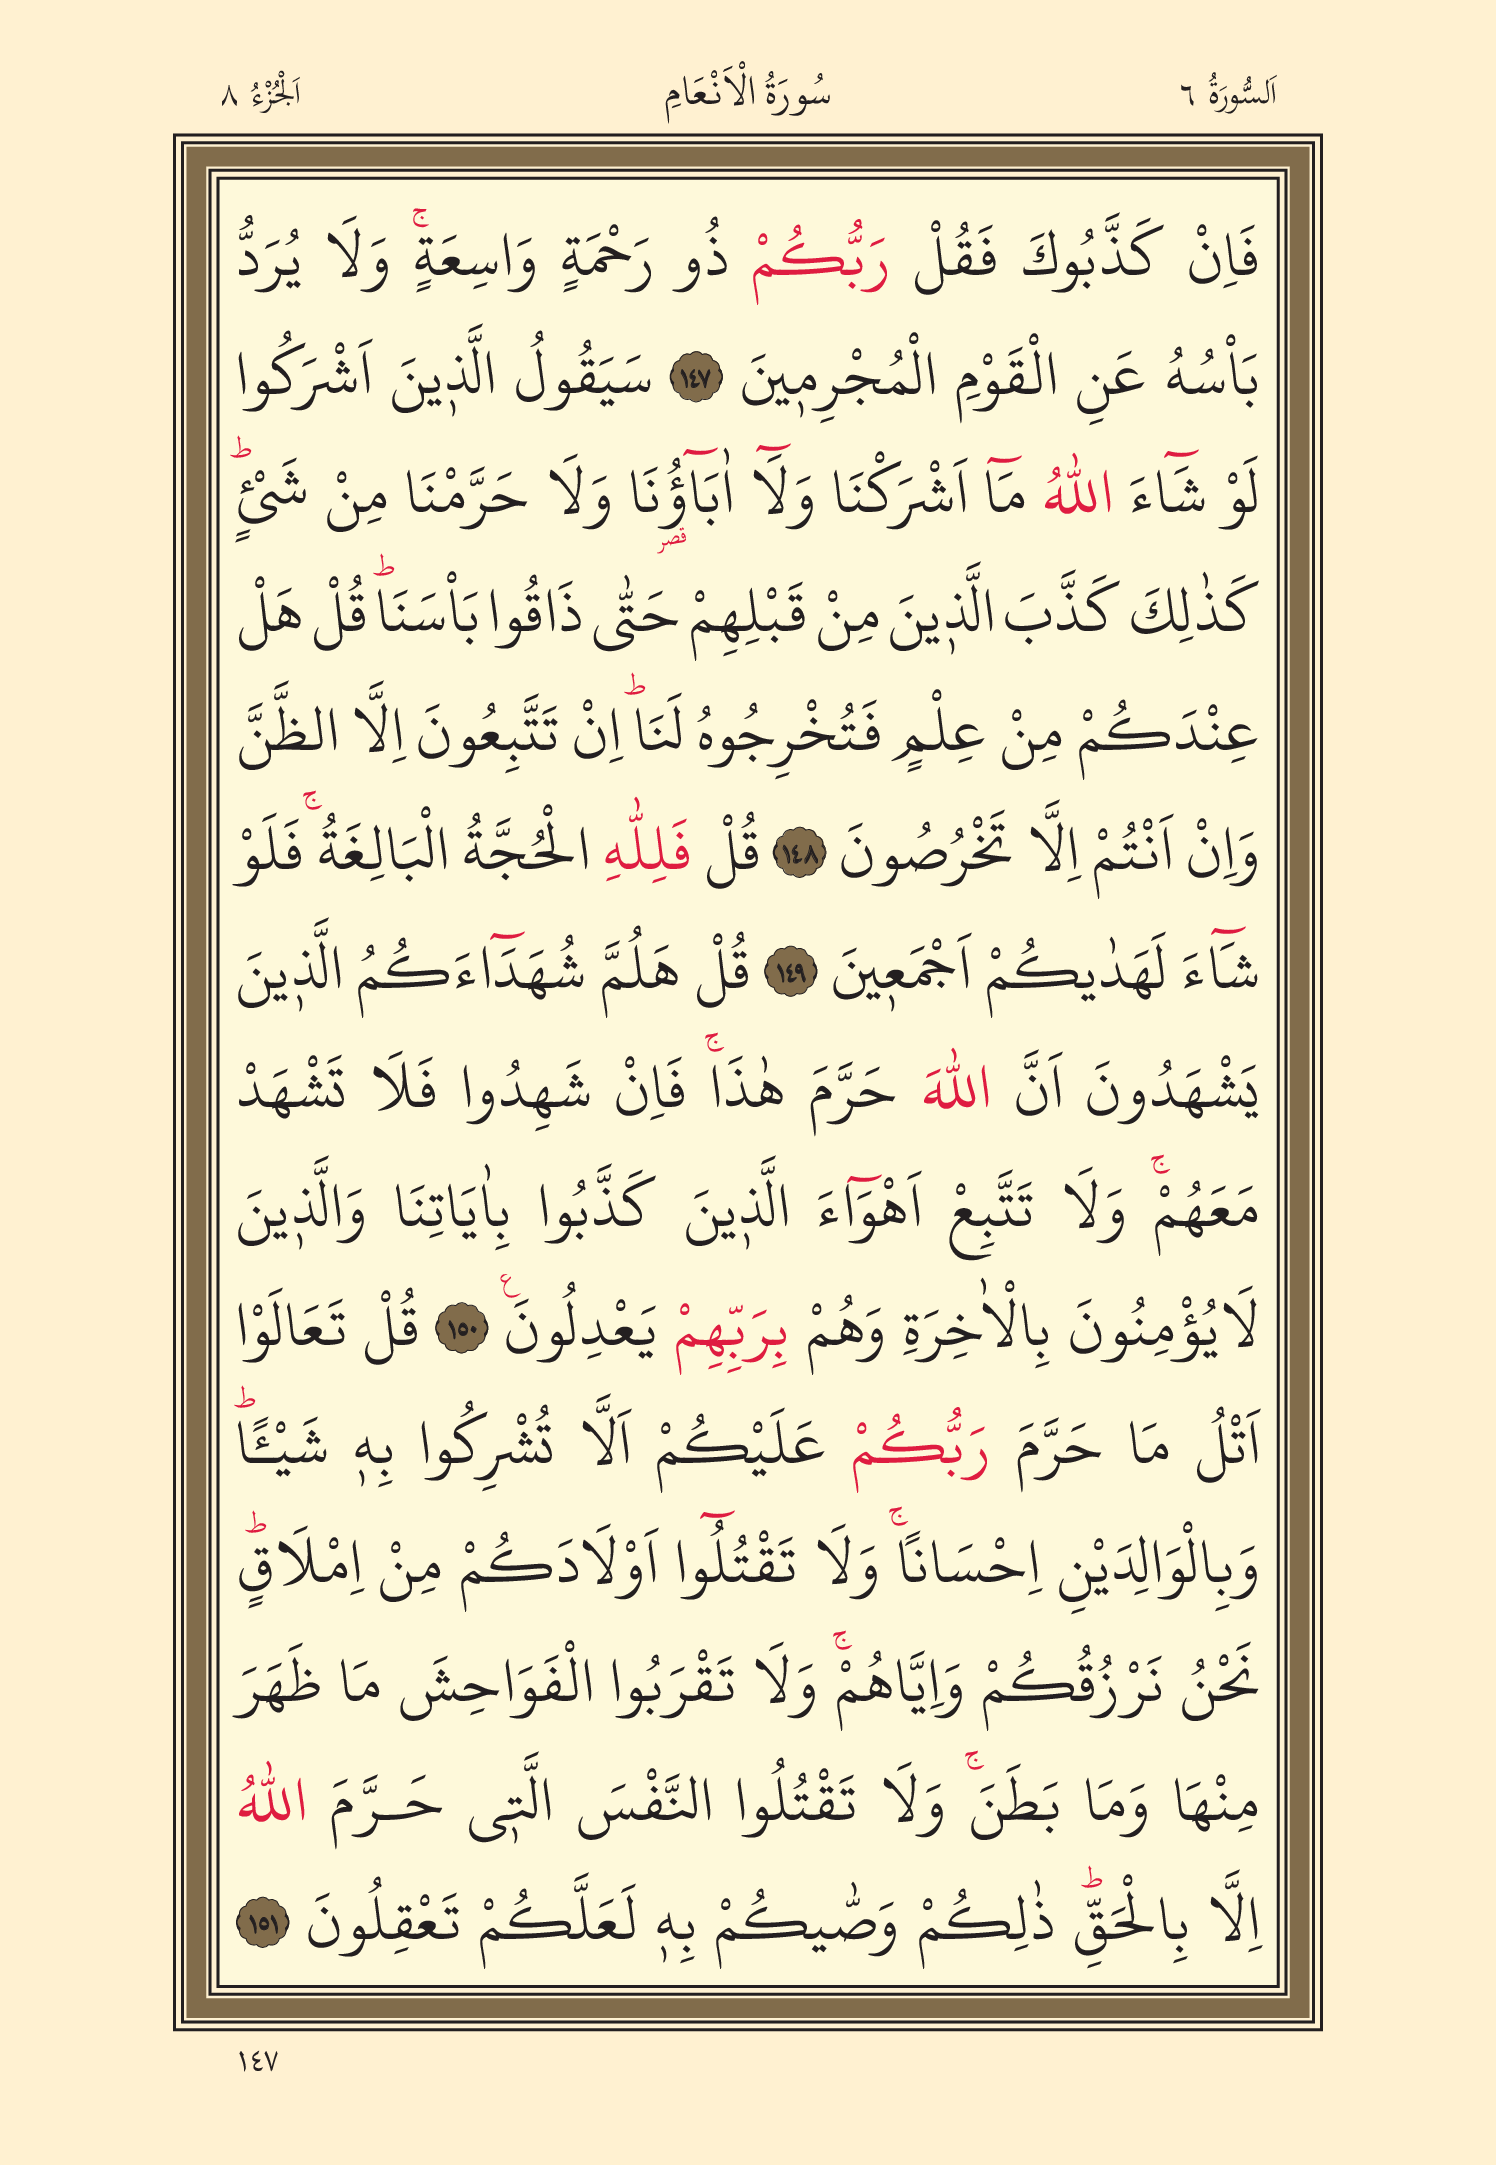 اَلسُّورَةُ ٦ سُورَةُ الْاَنْعَامِ اَلْجُزْءُ ٨
فَاِنْ كَذَّبُوكَ فَقُلْ رَبُّكُمْ ذُو رَحْمَةٍ وَاسِعَةٍۚ وَلَا يُرَدُّ
بَاْسُهُ عَنِ الْقَوْمِ الْمُجْرِم۪ينَ ﴿١٤٧﴾ سَيَقُولُ الَّذ۪ينَ اَشْرَكُوا
لَوْ شَٓاءَ اللّٰهُ مَٓا اَشْرَكْنَا وَلَٓا اٰبَٓاؤُ۬نَا وَلَا حَرَّمْنَا مِنْ شَيْئٍۜ
كَذٰلِكَ كَذَّبَ الَّذ۪ينَ مِنْ قَبْلِهِمْ حَتّٰى ذَاقُوا بَاْسَنَاۜ قُلْ هَلْ
عِنْدَكُمْ مِنْ عِلْمٍ فَتُخْرِجُوهُ لَنَاۜ اِنْ تَتَّبِعُونَ اِلَّا الظَّنَّ
وَاِنْ اَنْتُمْ اِلَّا تَخْرُصُونَ ﴿١٤٨﴾ قُلْ فَلِلّٰهِ الْحُجَّةُ الْبَالِغَةُۚ فَلَوْ
شَٓاءَ لَهَدٰيكُمْ اَجْمَع۪ينَ ﴿١٤٩﴾ قُلْ هَلُمَّ شُهَدَٓاءَكُمُ الَّذ۪ينَ
يَشْهَدُونَ اَنَّ اللّٰهَ حَرَّمَ هٰذَاۚ فَاِنْ شَهِدُوا فَلَا تَشْهَدْ
مَعَهُمْۚ وَلَا تَتَّبِعْ اَهْوَٓاءَ الَّذ۪ينَ كَذَّبُوا بِاٰيَاتِنَا وَالَّذ۪ينَ
لَا يُؤْمِنُونَ بِالْاٰخِرَةِ وَهُمْ بِرَبِّهِمْ يَعْدِلُونَ۟ ﴿١٥٠﴾ قُلْ تَعَالَوْا
اَتْلُ مَا حَرَّمَ رَبُّكُمْ عَلَيْكُمْ اَلَّا تُشْرِكُوا بِه۪ شَيْـًٔاۜ
وَبِالْوَالِدَيْنِ اِحْسَانًاۚ وَلَا تَقْتُلُٓوا اَوْلَادَكُمْ مِنْ اِمْلَاقٍۜ
نَحْنُ نَرْزُقُكُمْ وَاِيَّاهُمْۚ وَلَا تَقْرَبُوا الْفَوَاحِشَ مَا ظَهَرَ
مِنْهَا وَمَا بَطَنَۚ وَلَا تَقْتُلُوا النَّفْسَ الَّت۪ى حَرَّمَ اللّٰهُ
اِلَّا بِالْحَقِّۜ ذٰلِكُمْ وَصّٰيكُمْ بِه۪ لَعَلَّكُمْ تَعْقِلُونَ ﴿١٥١﴾
١٤٧